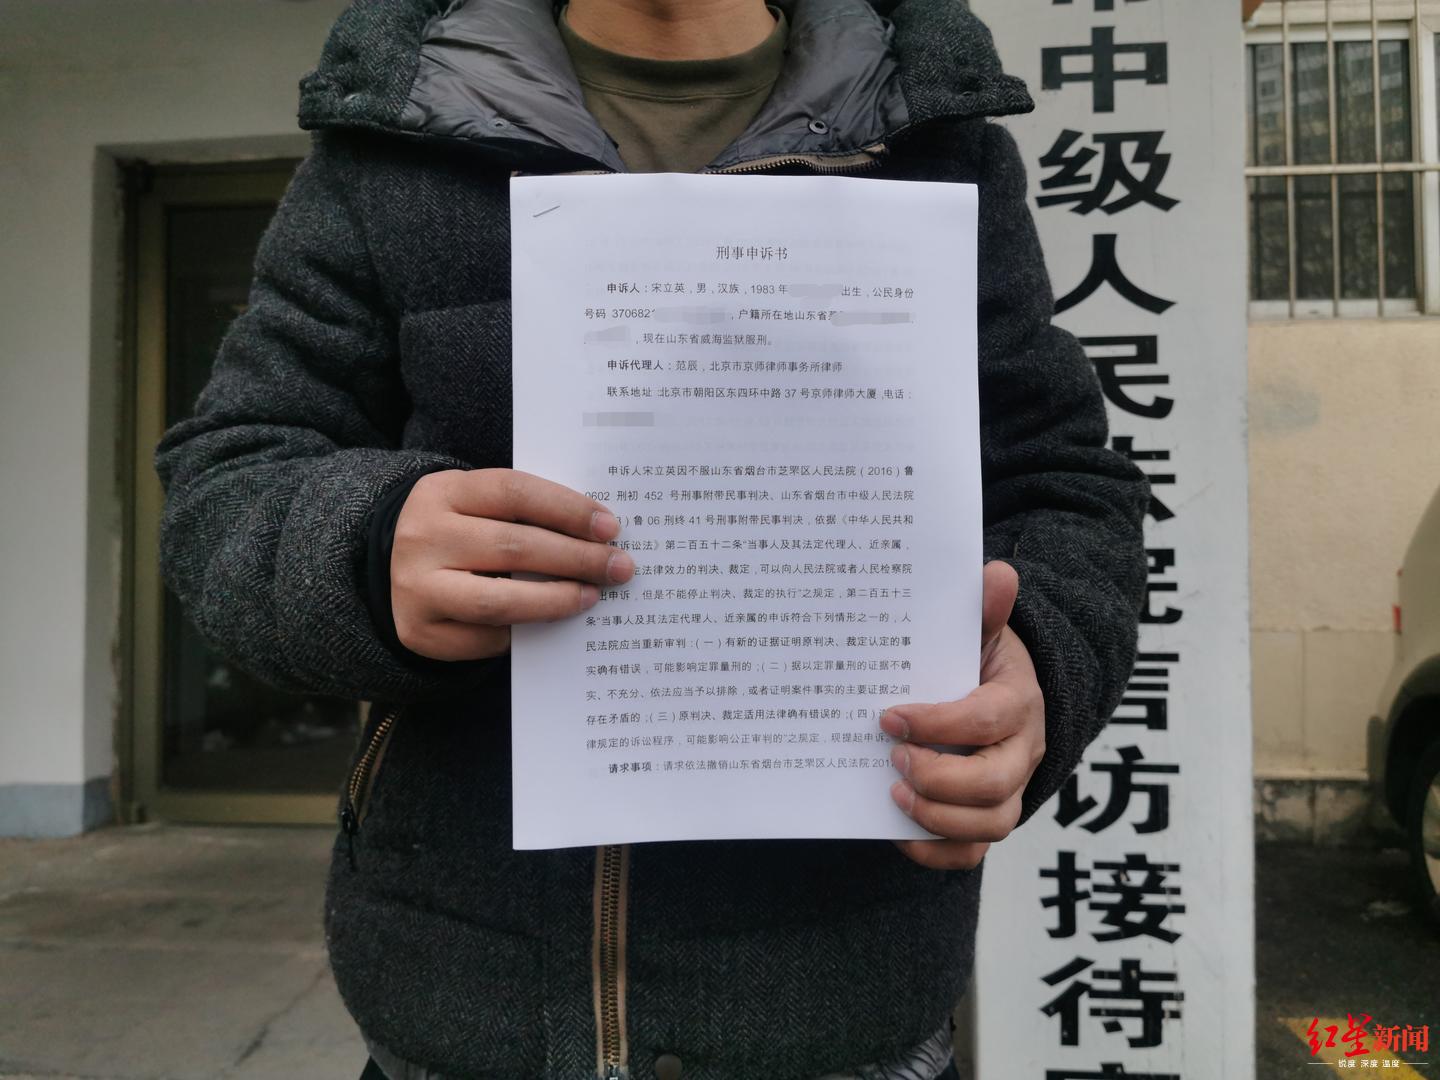 刑事申诉书
申诉人：宋立英，男，汉族，1983年 出生，公民身份
号码 3706821 ，户籍所在地山东省
，现在山东省威海监狱服刑。
申诉代理人：范辰，北京市京师律师事务所律师
联系地址：北京市朝阳区东四环中路37号京师律师大厦，电话：
申诉人宋立英因不服山东省烟台市芝罘区人民法院（2016）鲁
0602 刑初 452 号刑事附带民事判决、山东省烟台市中级人民法院
）鲁 06 刑终 41 号刑事附带民事判决，依据《中华人民共和
诉讼法》第二百五十二条“当事人及其法定代理人、近亲属，
法律效力的判决、裁定，可以向人民法院或者人民检察院
出申诉，但是不能停止判决、裁定的执行”之规定，第二百五十三
条“当事人及其法定代理人、近亲属的申诉符合下列情形之一的，人
民法院应当重新审判：（一）有新的证据证明原判决、裁定认定的事
实确有错误，可能影响定罪量刑的；（二）据以定罪量刑的证据不确
实、不充分、依法应当予以排除，或者证明案件事实的主要证据之间
存在矛盾的；（三）原判决、裁定适用法律确有错误的；（四）
律规定的诉讼程序，可能影响公正审判的”之规定，现提起申诉。
请求事项：请求依法撤销山东省烟台市芝罘区人民法院 201
市中级人民法院信访接待
红星新闻
锐度 深度 温度